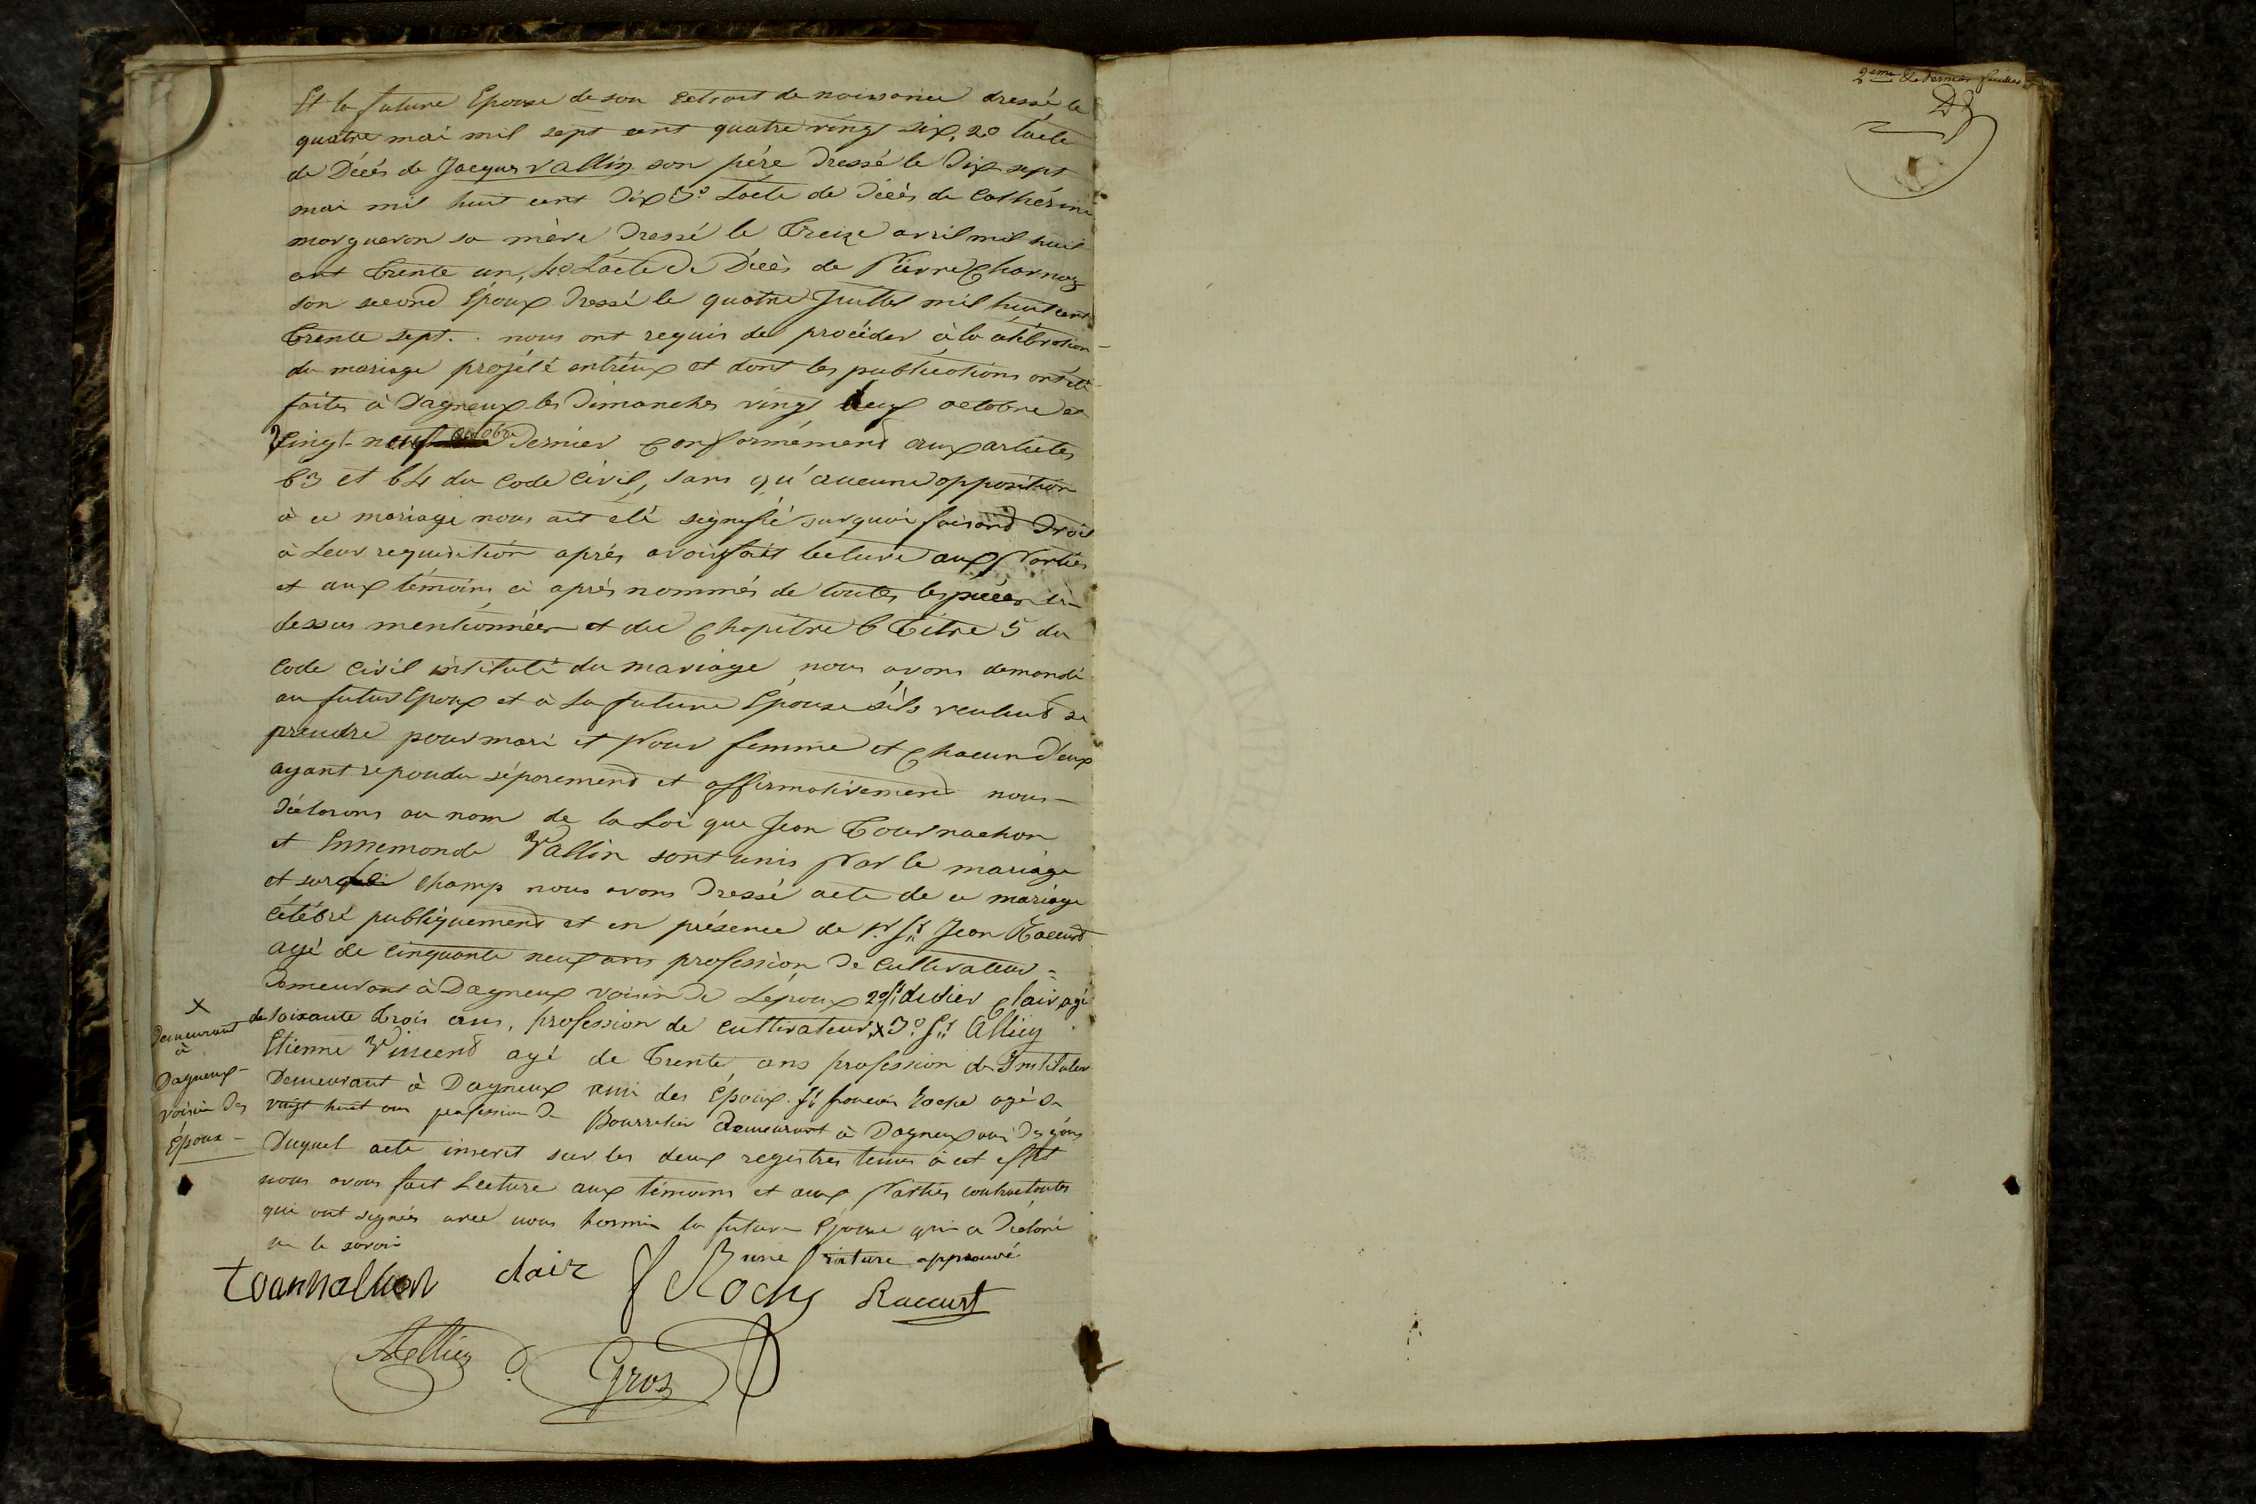 Et la future Epouse de son extrait de naissance dressé le
quatre mai mil sept cent quatre vingt six, 2o l'acte
de Décès de Jacques Vallin son père dressé le Dix sept
mai mil huit cent Dix 3o L'acte de décès de Cathérine
morgueron sa mère Dressé le Treize avril mil huit
cent trente un, 4o L'acte de Décès de Pierre Charnoz
son second Epoux dressé le quatre Juillet mil huit cent
trente sept. . nous ont requis de procéder à la célébration
du mariage projété entréux et dont les publications ont été
faites à Dagneux les Dimanches vingt deux octobre et
Vingt-neuf octobre Dernier conformément aux articles
63 et 64 du Code Civil, sans qu'aucune opposition
à ce mariage nous ait été signifié surquoi faisant Droit
à Leur requisition après avoir fait lecture aux Parties
et aux témoins ci après nommés de toutes les pièces ci-
dessus mentionnées et du Chapitre 6 Titre 5 du
Code Civil intitulé du mariage nous avons demandé
au futur Epoux et à La future Epouse s'ils veulent se
prendre pour mari et Pour femme et Chacun d'eux
ayant repondu séparement et affirmativement nous-
déclarons au nom de la Loi que Jean Tournachon
et Ennemonde Vallin sont unis Par le mariage
et sur champ nous avons Dressé acte de ce mariage
célébré publiquement et en présence de 1o Sr Jean Raccurt
agé de Cinquante neuf ans profession de Cultivateur =
Demeurant à Dagneux voisin de L'époux 2o Sr didier Clair agé
de soixante trois ans, profession de cultivateur x 3o Sr Alliey
Etienne Vincent agé de Trente ans profession de Instituteur
Demeurant à Dagneux ami des Epoux. Sr francois Roche agé de
vingt huit ans profession de Bourrelier Demeurant à Dagneux ami des époux
Duquel acte inscrit sur les deux registres tenus à cet effet
nous avons fait Lecture aux témoins et aux Parties contractantes
qui ont signés avec nous hormis la future Epouse qui a Déclaré
ne le savoir
une rature approuvé
x
Demeurant
à
Dagneux-
voisin des
époux-
tournachon clair f Roche Raccurt
Alliey Gros
2eme & Dernier feuillet